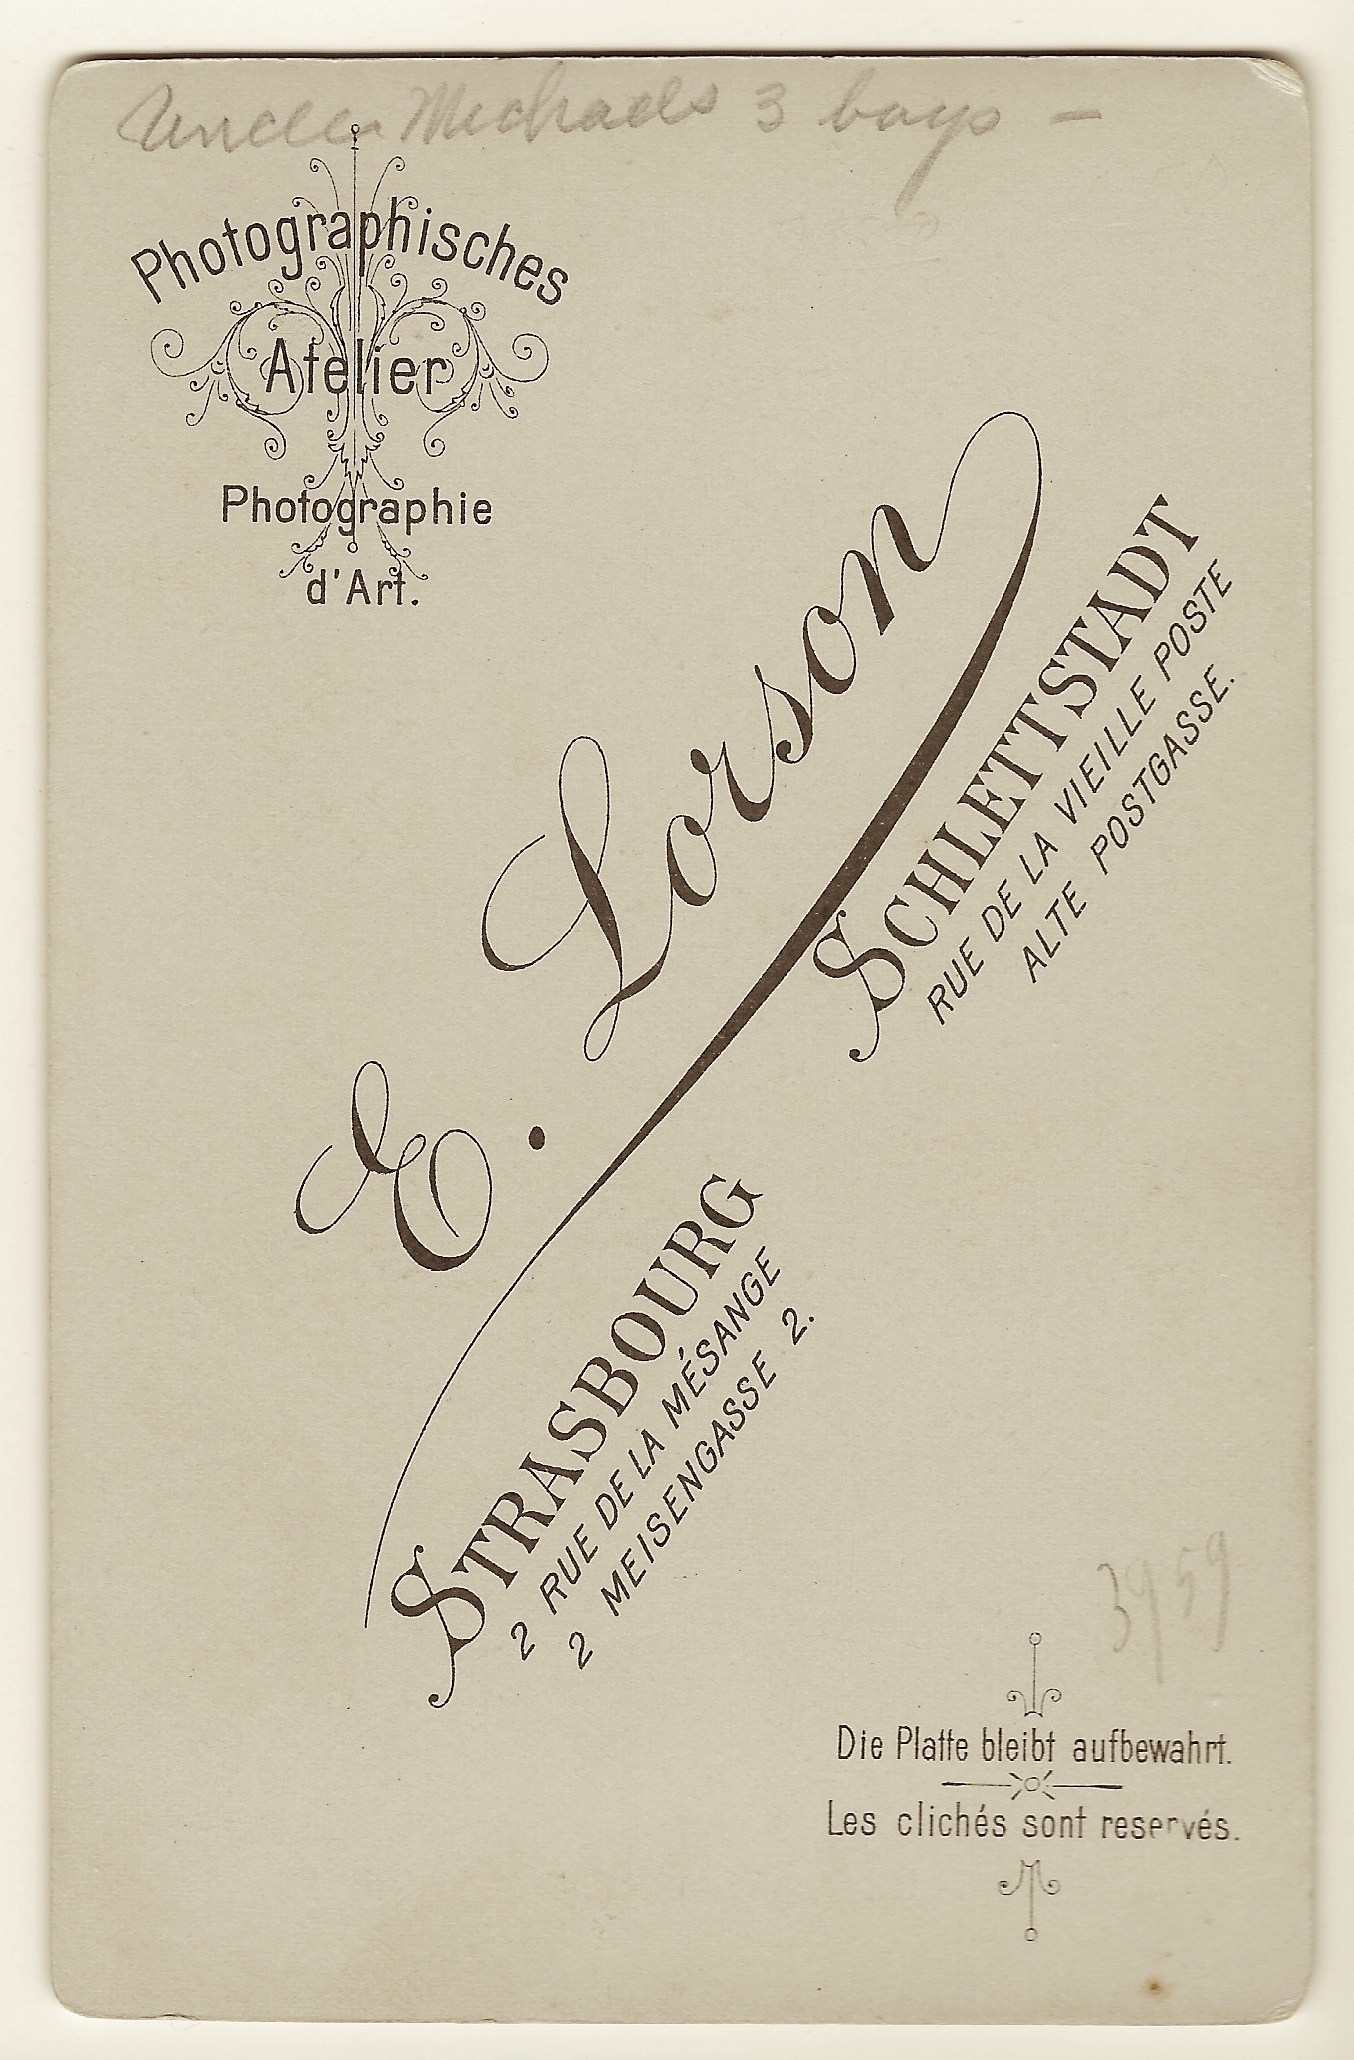 Uncle Michaels 3 boys —
Photographisches
Atelier
Photographie
d'Art.
E. Lorson
SCHLETTSTADT
RUE DE LA VIEILLE POSTE
ALTE POSTGASSE.
STRASBOURG
2 RUE DE LA MÉSANGE
2 MEISENGASSE 2.
3959
Die Platte bleibt aufbewahrt.
Les clichés sont reservés.